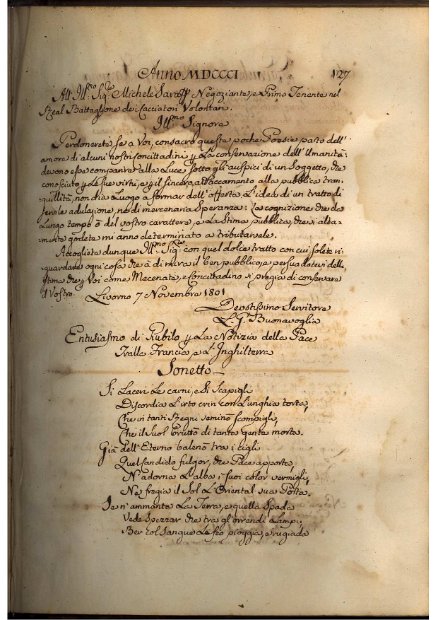 Anno MDCCCI 127
All' Ill.mo Sig.r Michele Negoziante, e Primo Tenente nel
Real Battaglione dei Cacciatori Volontari.
Ill.mo Signore
Perdonerete se a Voi, consacro queste poche Poesie parto dell'
amore di alcuni nostri concittadini p. La conservazione dell'Umanità:
devono esse comparire alla Luce sotto gli auspizi di un Soggetto, che
conosciuto p. Le sue virtù, e p. il sincero attaccamento alla pubblica tran
quillità, non dia Luogo a formar dell'offerta L'idea di un tratto di
servile adulazione, nè di mercenaria Speranza: La cognizione che da
Lungo tempo ò del vostro carattere, e La Stima pubblica, che sì alta
mente godete mi anno determinato a tributarvele.
Accogliete dunque Ill.mo Sig.r con quel dolce tratto con cui solete ri
guardare ogni cosa, che à di mira il ben pubblico, e persuadetevi della
stima, che p Voi come Mecenate, e Concittadino si pregia di conservare
il Vostro. Livorno 7 Novembre 1801
Devotissimo Servitore
Buonavoglia
Entusiasmo di Giubilo p La Notizia della Pace
tralla Francia, e L'Inghilterra
Sonetto
Si Laceri Le carni, e si scapigli
Discordia L'irto crin con L'unghia torta,
Che in tanti Regni seminò scompigli,
Che il Suol bruttò di tanta gente morta.
Già dell'Eterno balenò tra i cigli
Quel candido fulgor, che Pace apporta,
N'adorna L'alba i suoi color vermigli,
Ne fregia il Sol L'Oriental sua Porta.
Se n'ammanta La Terra, e quella Spada
Vede Spezzar che tra gli orrendi Lampi
Ber sol Sangue Le fe pioggia, e rugiada